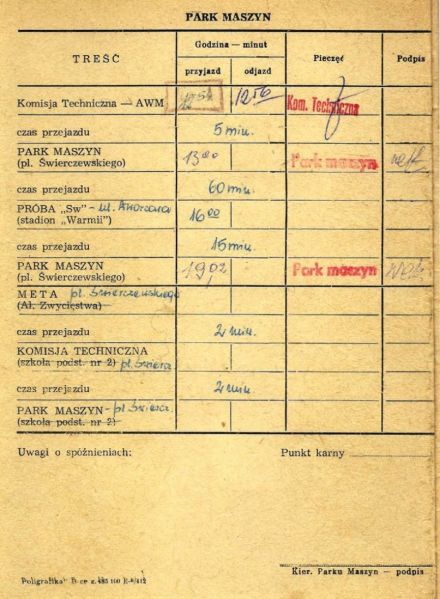 PARK MASZYN
TREŚĆ Godzina — minut Pieczęć Podpis
przyjazd odjazd
Komisja Techniczna — AWM 12 56 Kom. Techniczna
czas przejazdu 5 min.
PARK MASZYN 13 00 Park maszyn
(pl. Świerczewskiego)
czas przejazdu 60 min.
PRÓBA „Sw"- ul. 16 00
(stadion „Warmii")
czas przejazdu 15 min.
PARK MASZYN 19 02 Park maszyn
(pl. Świerczewskiego)
META pl. Świerczewskiego
(Al. Zwycięstwa)
czas przejazdu 2 min.
KOMISJA TECHNICZNA
(szkoła podst. nr 2) pl. Świercz.
czas przejazdu 2 min
PARK MASZYN - pl. Świercz.
(szkoła podst. nr 2)
Uwagi o spóźnieniach: Punkt karny
Kier. Parku Maszyn — podpis